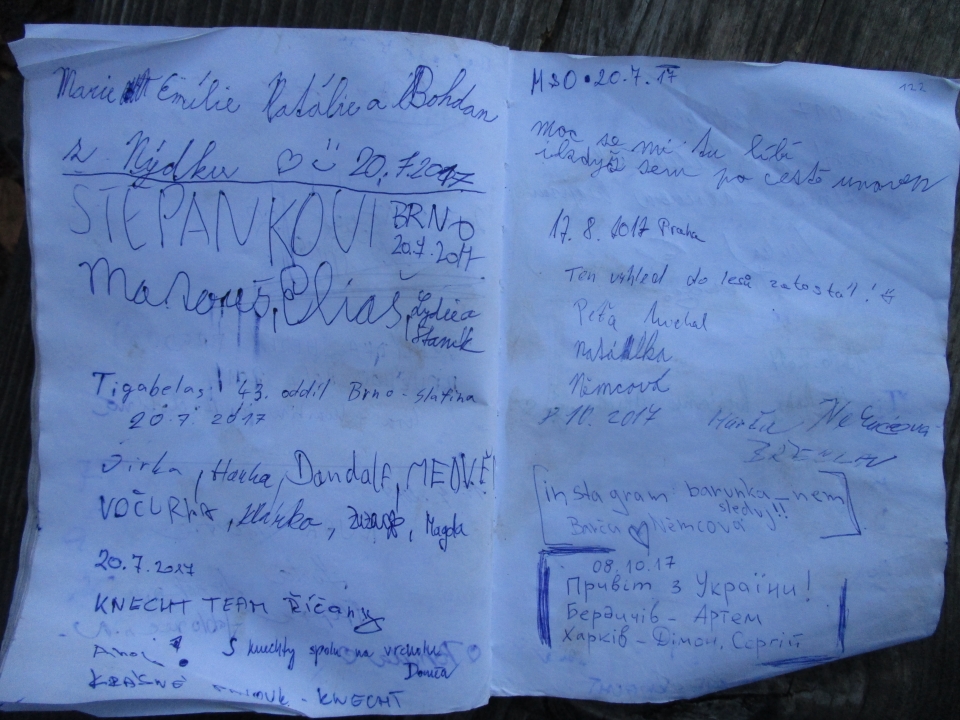 Marie Emílie Natálie a Bohdan
z Nýdku 20.7.2017
ŠTĚPÁNKOVI BRNO
20.7.2017
Matouš, Elias, Lydie a
Staník
Tigabelas! 43. oddíl Brno-Slatina
20.7.2017
Jirka, Hanka, Dandalf, MEDVĚĎ
VOČLRHA, Mirko, Zuzana, Magda
20.7.2017
KNECHT TEAM Říčany
Ahoj! S knechty spolu na vrcholu
Domča
KRÁSNÉ - KNECHT
MSO • 20.7.17
122
moc se mi tu líbí
i když sem po cestě unaven
17. 8. 2017 Praha
Ten výhled do lesů za to stál!
Peťa Michal
Natálka
Němcová
8.10.2017 Hanka Němcová
BŘECLAV
instagram: barunka_nem
sleduj!!
Barča Němcová
08.10.17
Привіт з України!
Бердичів - Артем
Харків - Дімон, Сергій